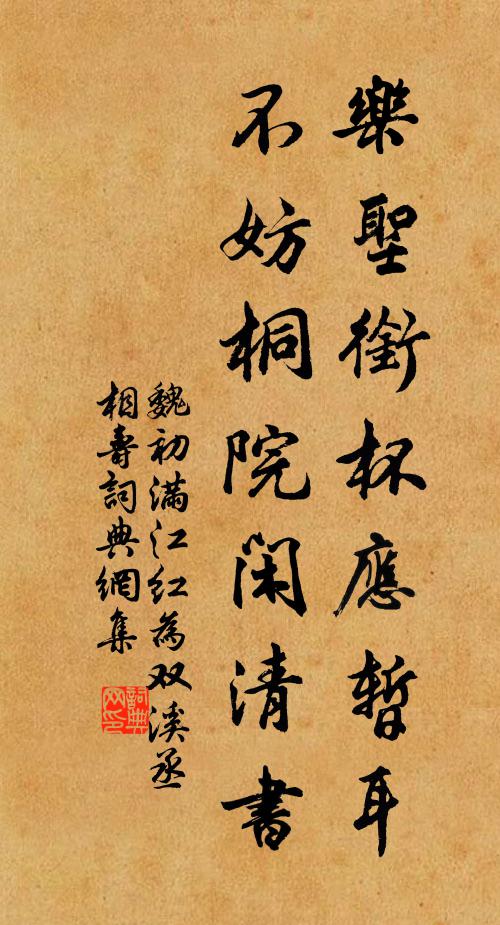 樂聖銜杯應暫耳
不妨桐院閑清書
魏初滿江紅為双溪丞
相壽詞典網集
詞典
网印